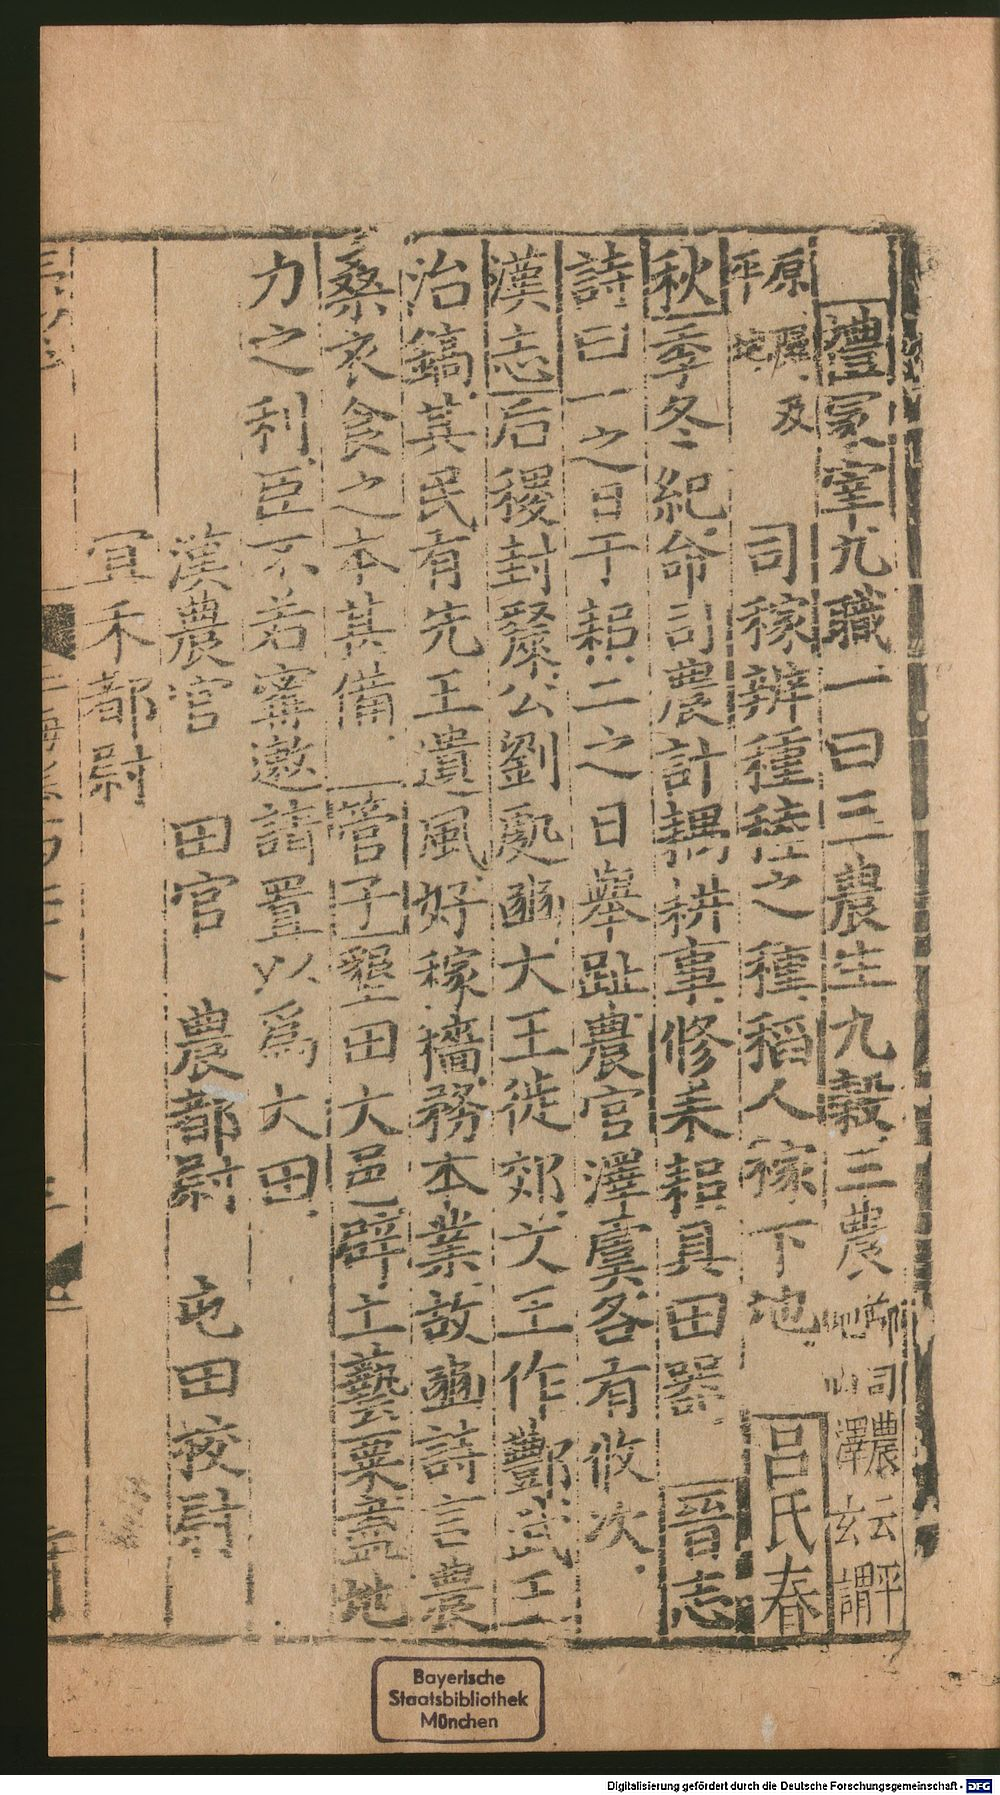 禮冢宰九職一曰三農生九穀三農鄭司農云平地山澤玄謂
原隰及平地 司稼辨種稑之種稻人稼下地 呂氏春
秋季冬紀命司農計耦耕事修耒耜具田器 晉志
詩曰一之日于耜二之日舉趾農官澤虞各有攸次
漢志后稷封斄公劉處豳大王徙郊文王作酆武王
治鎬其民有先王遺風好稼穡務本業故豳詩言農
桑衣食之本甚備 管子墾田大邑辟土藝粟盡地
力之利臣不若甯遬請置以爲大田
漢農官 田官 農都尉 屯田校尉
宜禾都尉
Bayerische
Staatsbibliothek
München
Digitalisierung gefördert durch die Deutsche Forschungsgemeinschaft - DFG